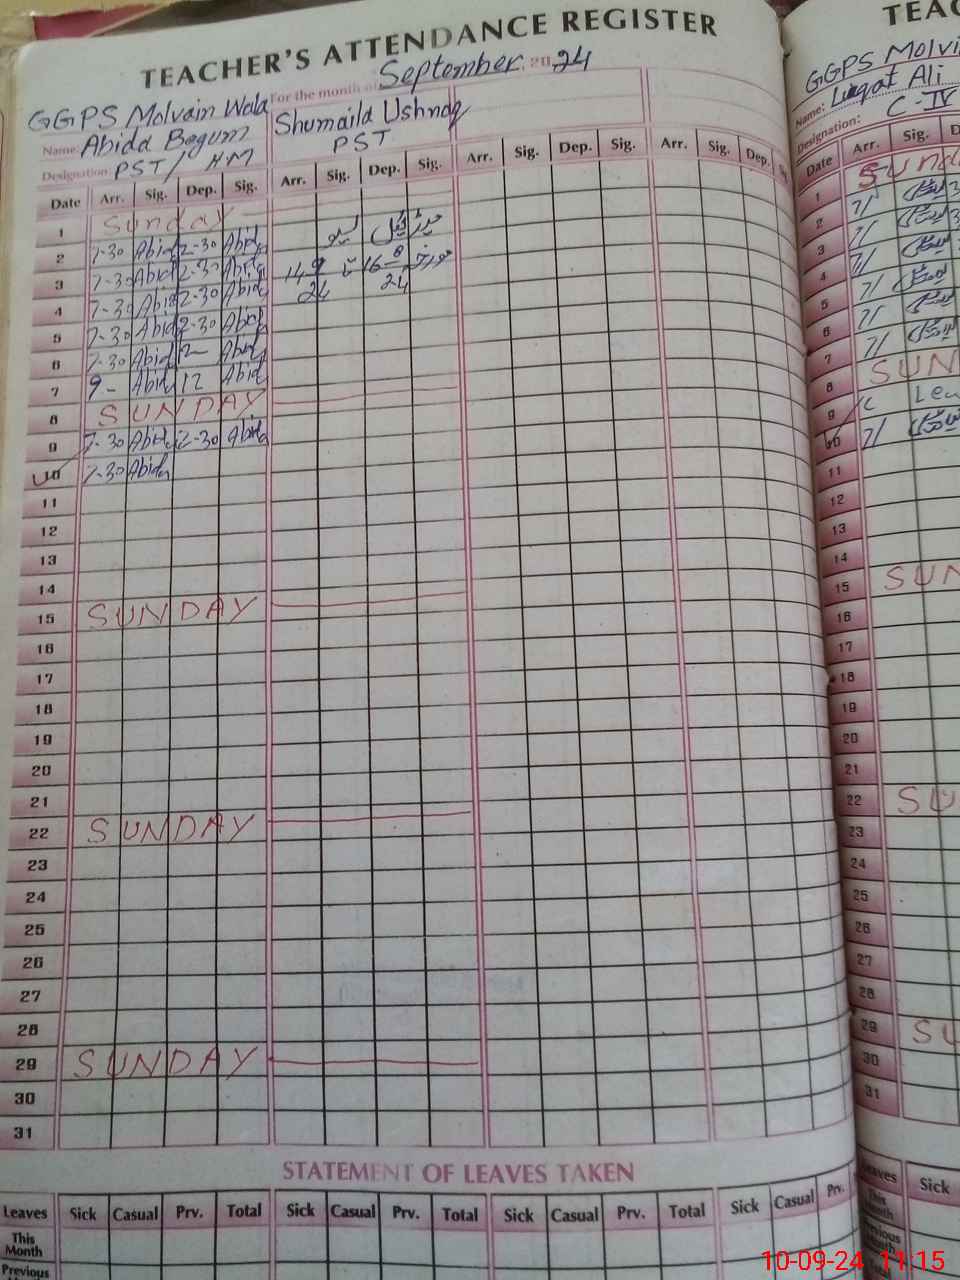 TEACHER'S ATTENDANCE REGISTER
For the month of September 2024
GGPS Molvain Wala
Name: Abida Begum
Designation PST / HM
Shumaila Ushnaq
PST
Date Arr. Sig. Dep. Sig. Arr. Sig. Dep. Sig. Arr. Sig. Dep. Sig. Arr. Sig. Dep.
1 Sunday
2 7-30 Abida 2-30 Abida
3 7-30 Abida 2-30 Abida 14 9 24 تا 16 8 24
4 7-30 Abida 2-30 Abida
5 7-30 Abida 2-30 Abida
6 7-30 Abida 12- Abida
7 9- Abida 12 Abida
8 SUNDAY
9 7-30 Abida 2-30 Abida
10 7-30 Abida
11
12
13
14
15 SUNDAY
16
17
18
19
20
21
22 SUNDAY
23
24
25
26
27
28
29 SUNDAY
30
31
STATEMENT OF LEAVES TAKEN
Leaves Sick Casual Prv. Total Sick Casual Prv. Total Sick Casual Prv. Total Sick Casual Prv.
This Month
Previous
TEAC
GGPS Molvi
Name: Liaqat Ali
Designation: C-IV
Date Arr. Sig. D
1 Sund
2 7/
3 7/
4 7/
5 7/
6 7/
7 7/
8 SUN
9 Lea
10 7/
11
12
13
14
15 SUN
16
17
18
19
20
21
22 SU
23
24
25
26
27
28
29 SU
30
31
Leaves Sick
This Month
Previous
10-09-24 11:15